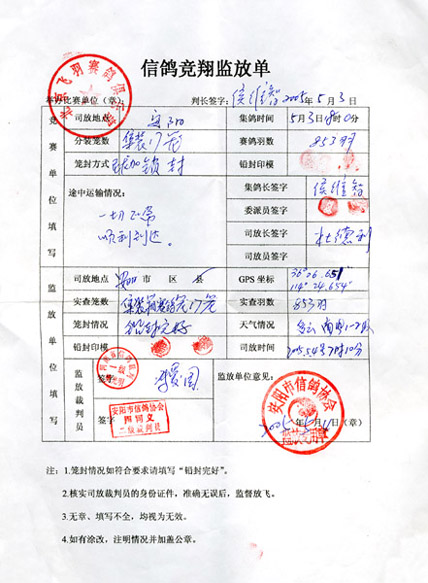 信鸽竞翔监放单
主办比赛单位（章）： 判长签字：侯维智 2005年5月3日
竞赛单位填写
司放地点 安阳 集鸽时间 5月3日8时0分
分装笼数 集装17笼 赛鸽羽数 853羽
笼封方式 铅封 铅封印模
途中运输情况：
一切正常
顺利到达。
集鸽长签字 侯维智
委派员签字
司放长签字 杜德利
司放员签字
监放单位填写
司放地点 安阳市 区 县 GPS 坐标 36°26.651 114°24.654
实查笼数 17笼 实查羽数 853羽
笼封情况 铅封完好 天气情况 多云 南风1-2级
铅封印模 司放时间 2005.5.4 7时10分
监放裁判员
签字
签字
监放单位意见：
安阳市信鸽协会
二级裁判员
安阳市信鸽协会
2005年5月 日（章）
注：1.笼封情况如符合要求请填写“铅封完好”。
2.核实司放裁判员的身份证件，准确无误后，监督放飞。
3.无章、填写不全，均视为无效。
4.如有涂改，注明情况并加盖公章。